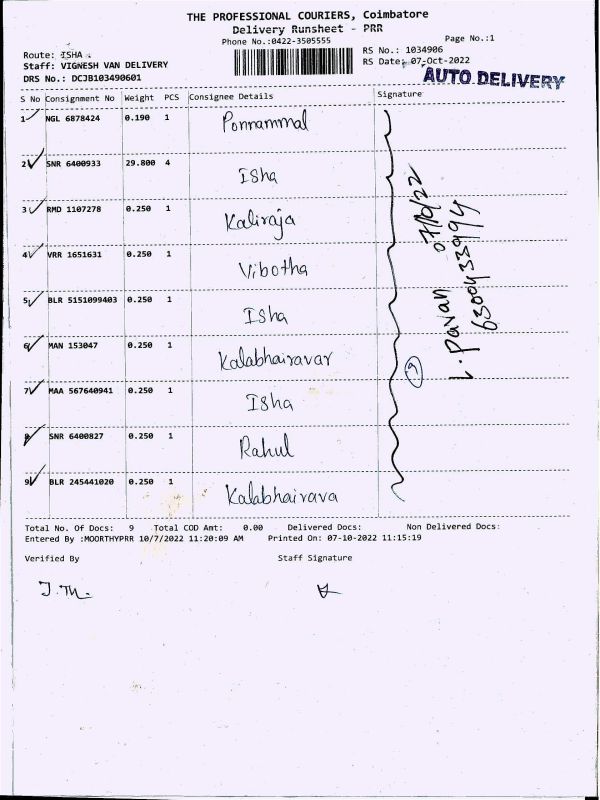 THE PROFESSIONAL COURIERS, Coimbatore
Delivery Runsheet - PRR
Phone No.:0422-3505555
Page No.:1
Route: ISHA
RS No.: 1034906
Staff: VIGNESH VAN DELIVERY
RS Date: 07-Oct-2022
DRS No.: DCJB103490601
AUTO DELIVERY
S No Consignment No Weight PCS Consignee Details Signature
1 NGL 6878424 0.190 1 Ponnammal
2 SNR 6400933 29.800 4 Isha
3 RMD 1107278 0.250 1 Kaliraja
4 VRR 1651631 0.250 1 Vibotha
5 BLR 5151099403 0.250 1 Isha
6 MAN 153047 0.250 1 Kalabhairavar
7 MAA 567640941 0.250 1 Isha
8 SNR 6400827 0.250 1 Rahul
9 BLR 245441020 0.250 1 Kalabhairava
L. Pavan 07/10/22
6300433994
9
Total No. Of Docs: 9 Total COD Amt: 0.00 Delivered Docs: Non Delivered Docs:
Entered By :MOORTHYPRR 10/7/2022 11:20:09 AM Printed On: 07-10-2022 11:15:19
Verified By Staff Signature